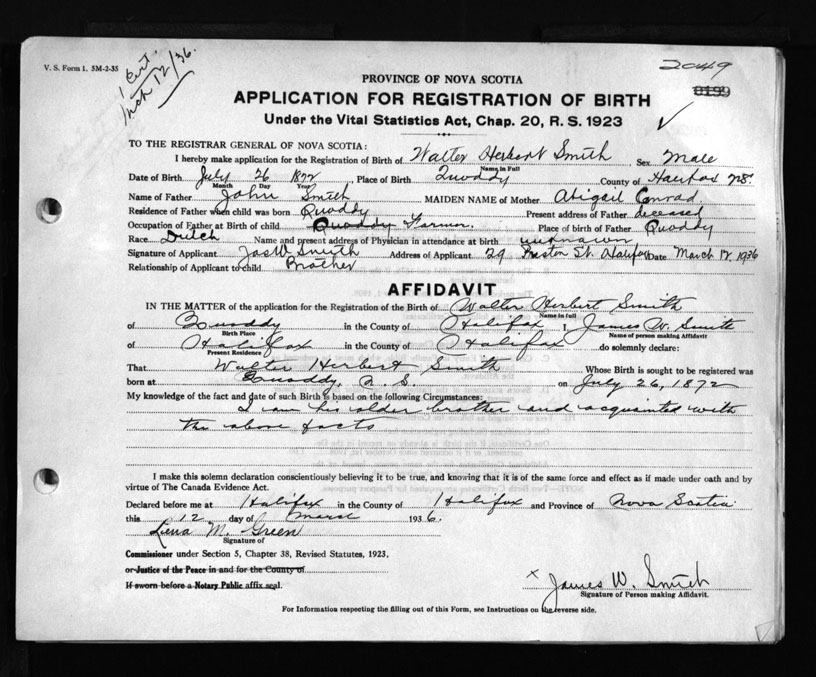 V. S. Form 1. 5M-2-35
1 Cert.
Mch 12/36.
2049
0199
PROVINCE OF NOVA SCOTIA
APPLICATION FOR REGISTRATION OF BIRTH
Under the Vital Statistics Act, Chap. 20, R. S. 1923
TO THE REGISTRAR GENERAL OF NOVA SCOTIA:
I hereby make application for the Registration of Birth of Walter Herbert Smith Sex Male
Name in Full
Date of Birth July 26 1872, Place of Birth Quoddy County of Halifax N.S.
Month Day Year
Name of Father John Smith MAIDEN NAME of Mother Abigail Conrad
Residence of Father when child was born Quoddy Present address of Father deceased
Occupation of Father at Birth of child Quoddy Farmer. Place of birth of Father Quoddy
Race Dutch Name and present address of Physician in attendance at birth unknown
Signature of Applicant Jas W Smith Address of Applicant 29 Preston St. Halifax Date March 12, 1936
Relationship of Applicant to child Brother
AFFIDAVIT
IN THE MATTER of the application for the Registration of the Birth of Walter Herbert Smith
Name in full
of Quoddy in the County of Halifax I, James W. Smith
Birth Place Name of person making Affidavit
of Halifax in the County of Halifax do solemnly declare:
Present Residence
That Walter Herbert Smith Whose Birth is sought to be registered was
born at Quoddy, N. S. on July 26, 1872
My knowledge of the fact and date of such Birth is based on the following Circumstances:
I am his older brother and acquainted with
the above facts
I make this solemn declaration conscientiously believing it to be true, and knowing that it is of the same force and effect as if made under oath and by
virtue of The Canada Evidence Act.
Declared before me at Halifax in the County of Halifax and Province of Nova Scotia
this 12 day of March 1936.
Lena M. Green
Signature of
Commissioner under Section 5, Chapter 38, Revised Statutes, 1923,
or Justice of the Peace in and for the County of
If sworn before a Notary Public affix seal.
x James W. Smith
Signature of Person making Affidavit.
For Information respecting the filling out of this Form, see Instructions on the reverse side.